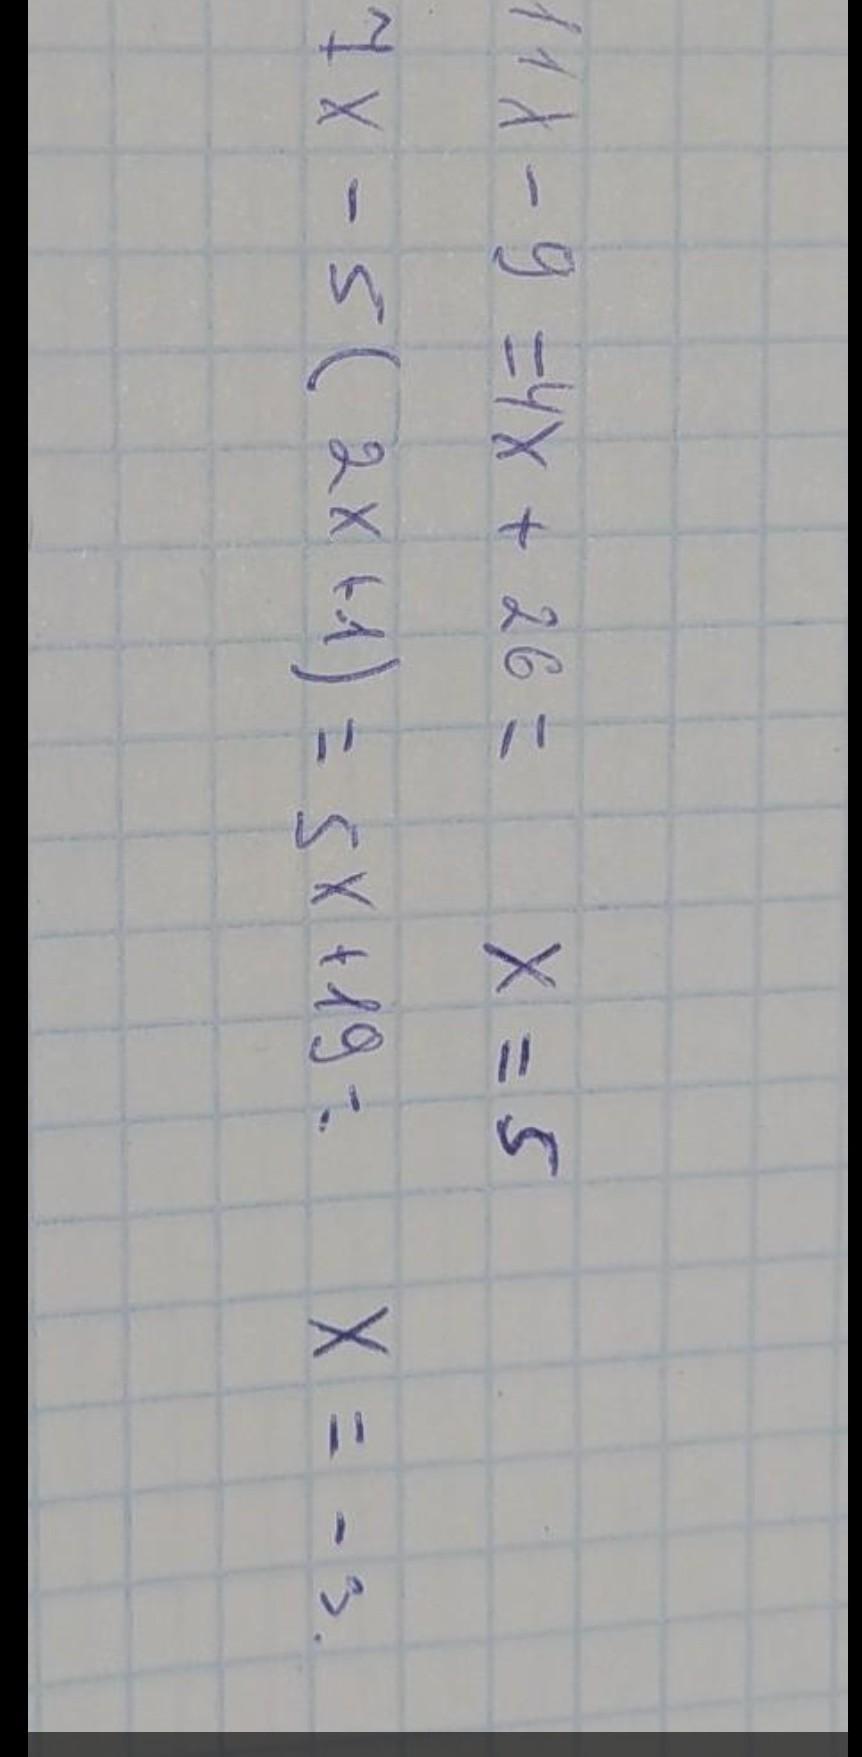 11x - 9 = 4x + 26 = x = 5
7x - 5(2x+1) = 5x + 19 = x = -3.